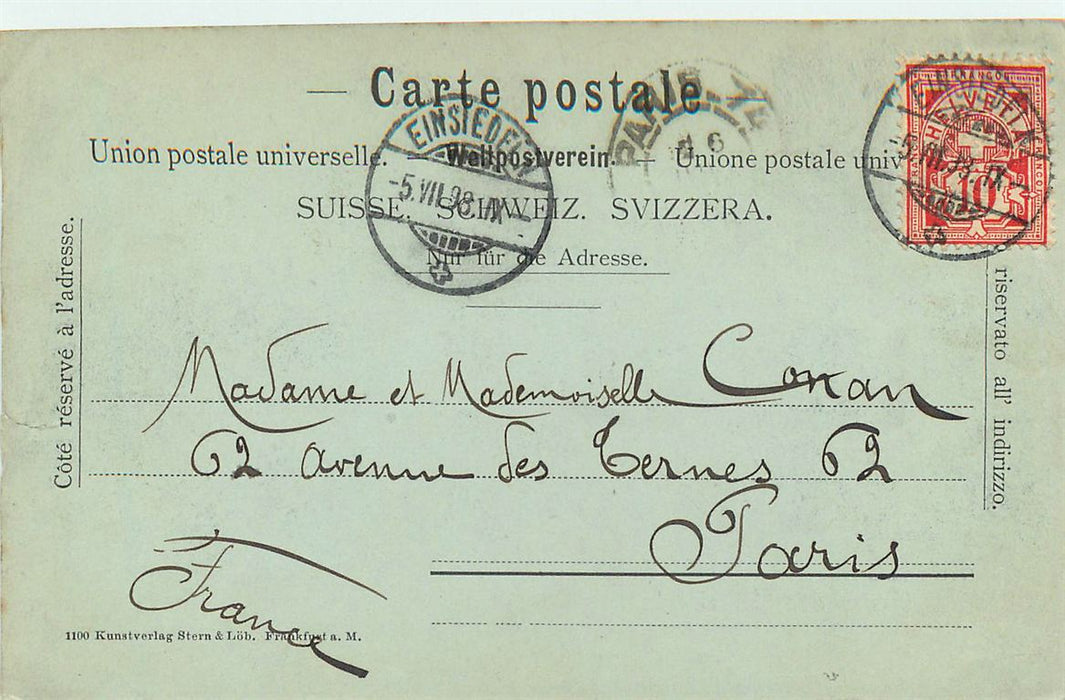 — Carte postale
Union postale universelle. — Weltpostverein. — Unione postale univ
SUISSE. SCHWEIZ. SVIZZERA.
Nur für die Adresse.
EINSIEDELN
-5.VII.98.IX-
PARIS
HELVETIA
10
Côté réservé à l'adresse.
riservato all' indirizzo.
Madame et Mademoiselle Conan
62 avenue des Ternes 62
Paris
France
1100 Kunstverlag Stern & Löb. Frankfurt a. M.